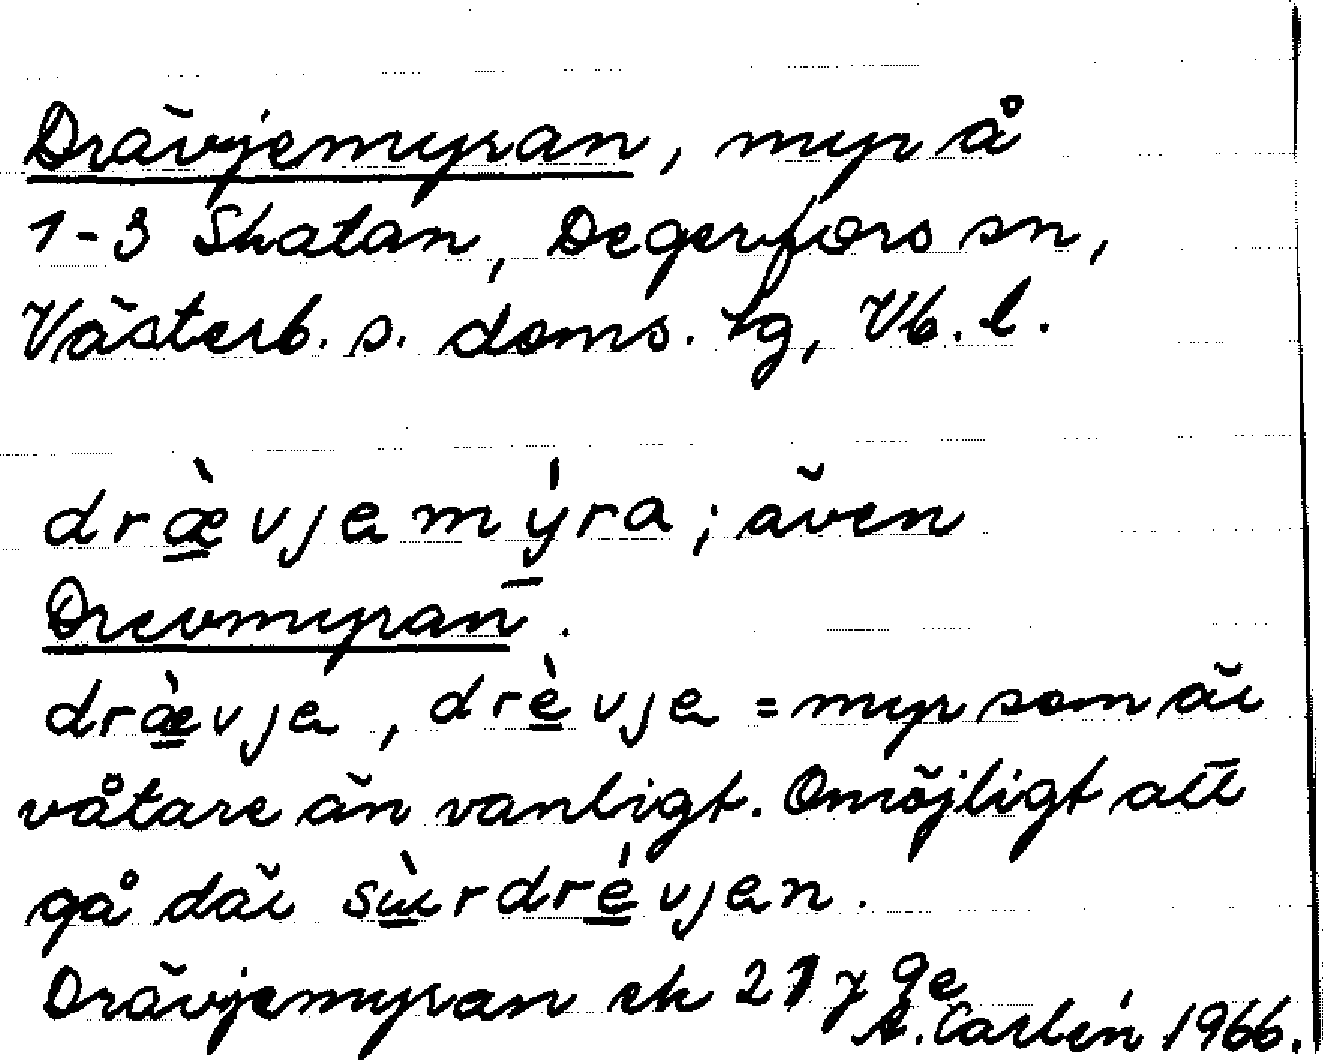 Drävjemyran, myr å
1-3 Skatan, Degerfors sn,
Västerb. s. doms. tg, Vb. l.
dræ̀vjamýra; även
Drevmyran.
dræ̀vja, drèvja = myr som är
våtare än vanligt. Omöjligt att
gå där sùrdrévjan.
Drävjemyran ek 21 7 9e
A. Carlén 1966.